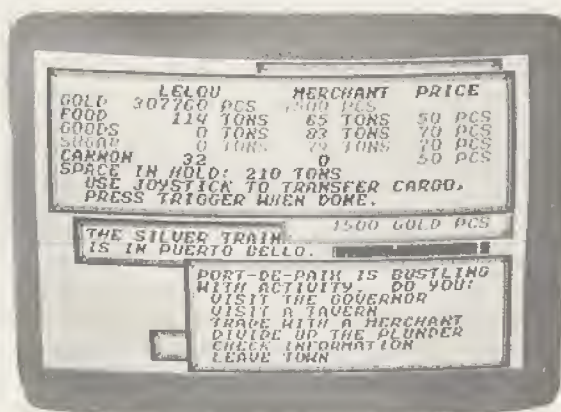 LELOU MERCHANT PRICE
GOLD 307760 PCS 1500 PCS
FOOD 114 TONS 65 TONS 50 PCS
GOODS 0 TONS 83 TONS 70 PCS
SUGAR 0 TONS 79 TONS 70 PCS
CANNON 32 0 50 PCS
SPACE IN HOLD: 210 TONS
USE JOYSTICK TO TRANSFER CARGO,
PRESS TRIGGER WHEN DONE.
1500 GOLD PCS
THE SILVER TRAIN
IS IN PUERTO BELLO.
PORT-DE-PAIX IS BUSTLING
WITH ACTIVITY. DO YOU:
VISIT THE GOVERNOR
VISIT A TAVERN
TRADE WITH A MERCHANT
DIVIDE UP THE PLUNDER
CHECK INFORMATION
LEAVE TOWN